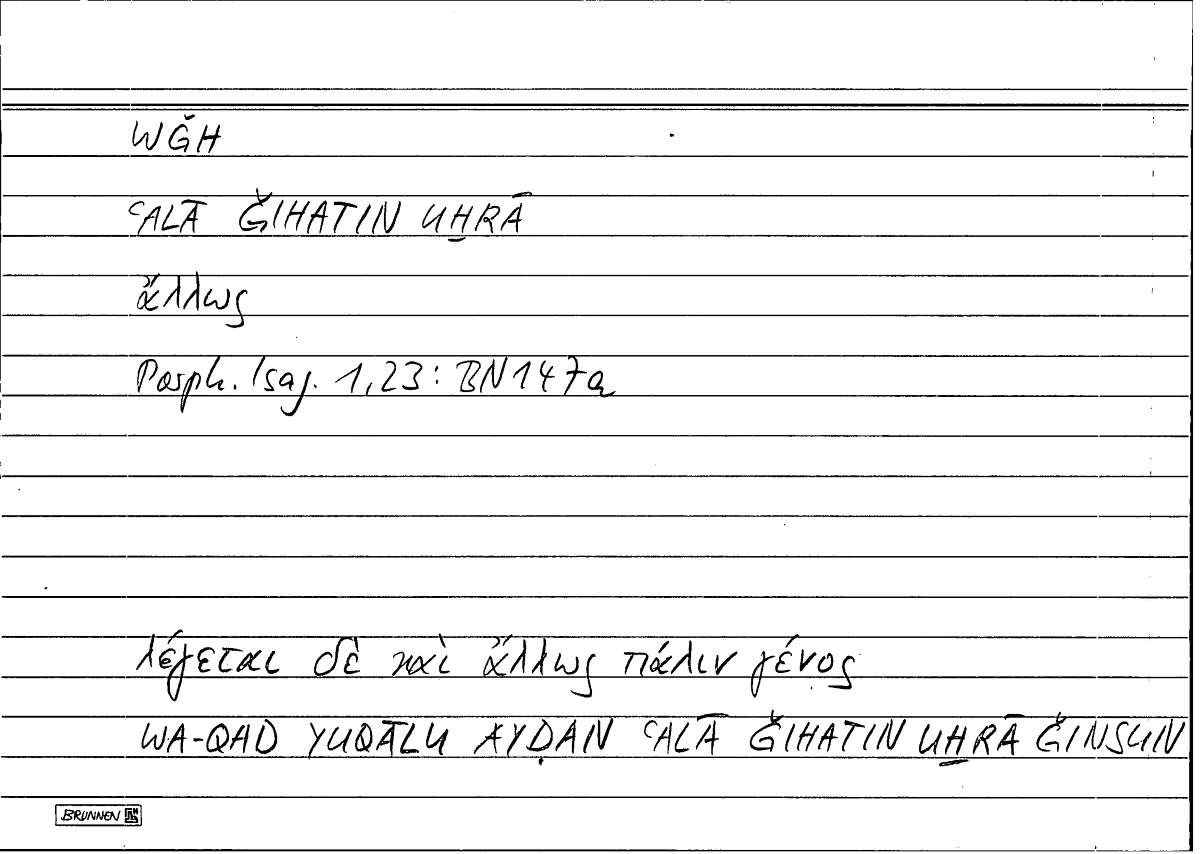 WǦH
ʿALĀ ǦIHATIN UH̱RĀ
ἄλλως
Porph. Isag. 1,23: BN147a
λέγεται δὲ καὶ ἄλλως πάλιν γένος
WA-QAD YUQĀLU AYḌAN ʿALĀ ǦIHATIN UH̱RĀ ǦINSUN
BRUNNEN